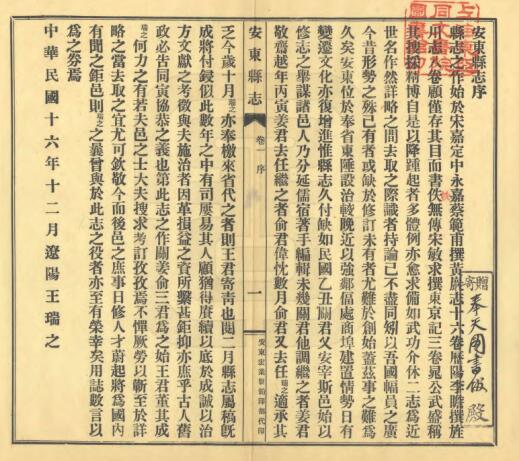 安東縣志序
縣志之作始於宋嘉定中永嘉蔡範甫撰黃巖志十六卷曆陽李瞻撰旌
川志八卷顧僅存其目而書佚無傳宋敏求撰東京記三卷晁公武盛稱
其搜採精博自是以降踵起者多體例亦愈求備如武功介休二志爲近
世名作然詳略之間去取之際識者持論已不盡同矧以吾國幅員之廣
今昔形勢之殊已有者或缺於修訂未有者尤難於創始蓋茲事之難爲
久矣安東位於奉省東陲設治較晚近以強鄰偪處商埠建置情勢日有
變遷文化亦復增進惟縣志久付缺如民國乙丑關君又安宰斯邑始以
修志之舉謀諸邑人乃分延儒宿著手編輯未幾關君他調繼之者姜君
敬齋越年丙寅姜君去任繼之者俞君偉忱數月俞君又去任瑞之適承其
乏今歲十月瑞之亦奉檄來省代之者則王君寄青也閱二月縣志屬稿旣
成將付鋟似此數年之中有司屢易其人顧猶得賡續以底於成誠以治
方文獻之考徵與夫施治者因革損益之資所繫甚鉅抑亦庶乎古人舊
政必告同寅協恭之義也第此志之作關姜俞三君爲之始王君董其成
瑞之何力之有若夫邑之士大夫搜求考訂孜孜焉不憚厥勞以蘄至於詳
略之當去取之宜尤可欽敬今而後邑之庶事日修人才蔚起將爲國內
有聞之鉅邑則瑞之之曩曾與於此志之役者亦至有榮幸矣用誌數言以
爲之券焉
中華民國十六年十二月遼陽王瑞之
安東縣志
卷一 序
一
安東宏業號鉛印部代印
奉天圖書館 殿
寄贈